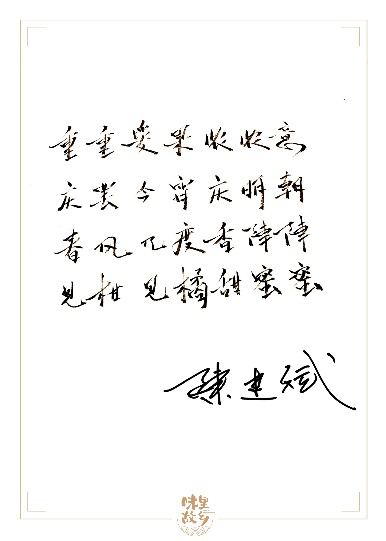 重重叠果收收意
庆裳今宵庆明朝
春风几度香阵阵
见柑见橘甜蜜蜜
陈建斌
味里
故乡